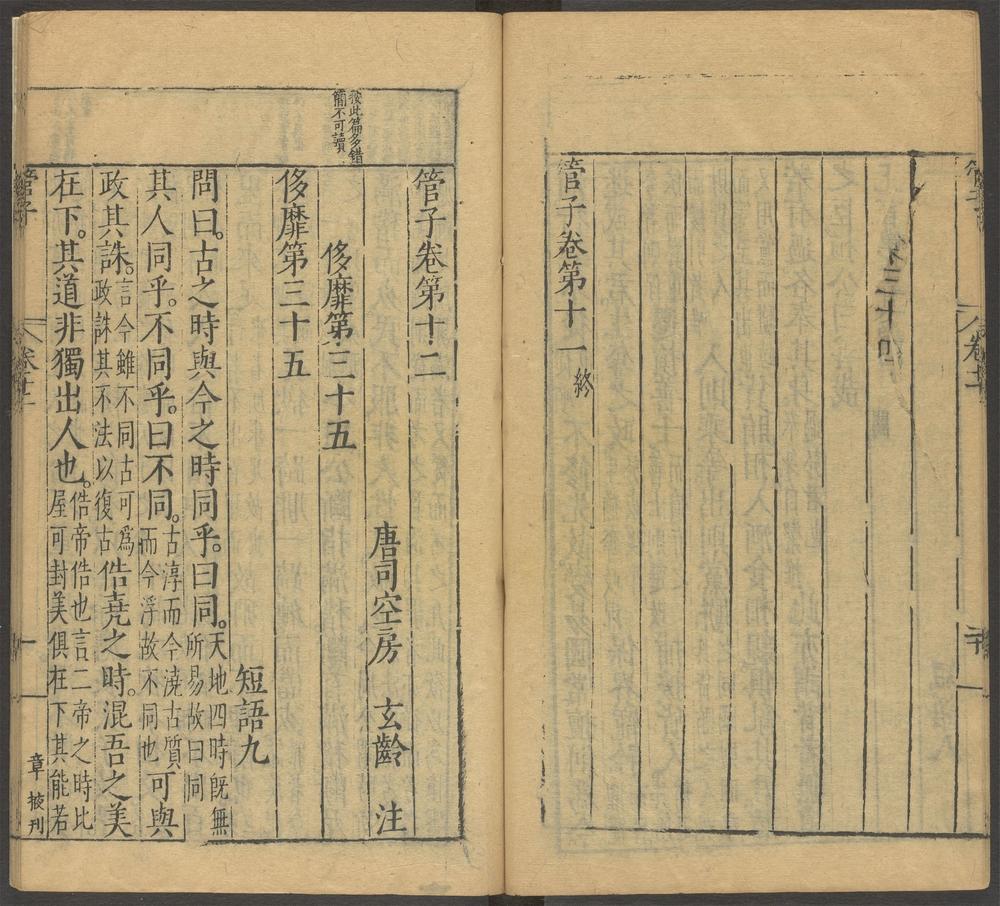 管子卷第十一終
管子卷第十二
唐司空房 玄齡 注
侈靡第三十五
侈靡第三十五
按此篇多錯
簡不可讀
短語九
問曰。古之時與今之時同乎。曰同。天地四時旣無所易故曰同
其人同乎。不同乎。曰不同。古淳而今澆古質而今浮故不同也可與
政其誅。言今雖不同古可爲政誅其不法以復古俈堯之時。混吾之美
在下。其道非獨出人也。俈帝俈也言二帝之時比屋可封美俱在下其能若
管子
卷十二
一
章掖刊